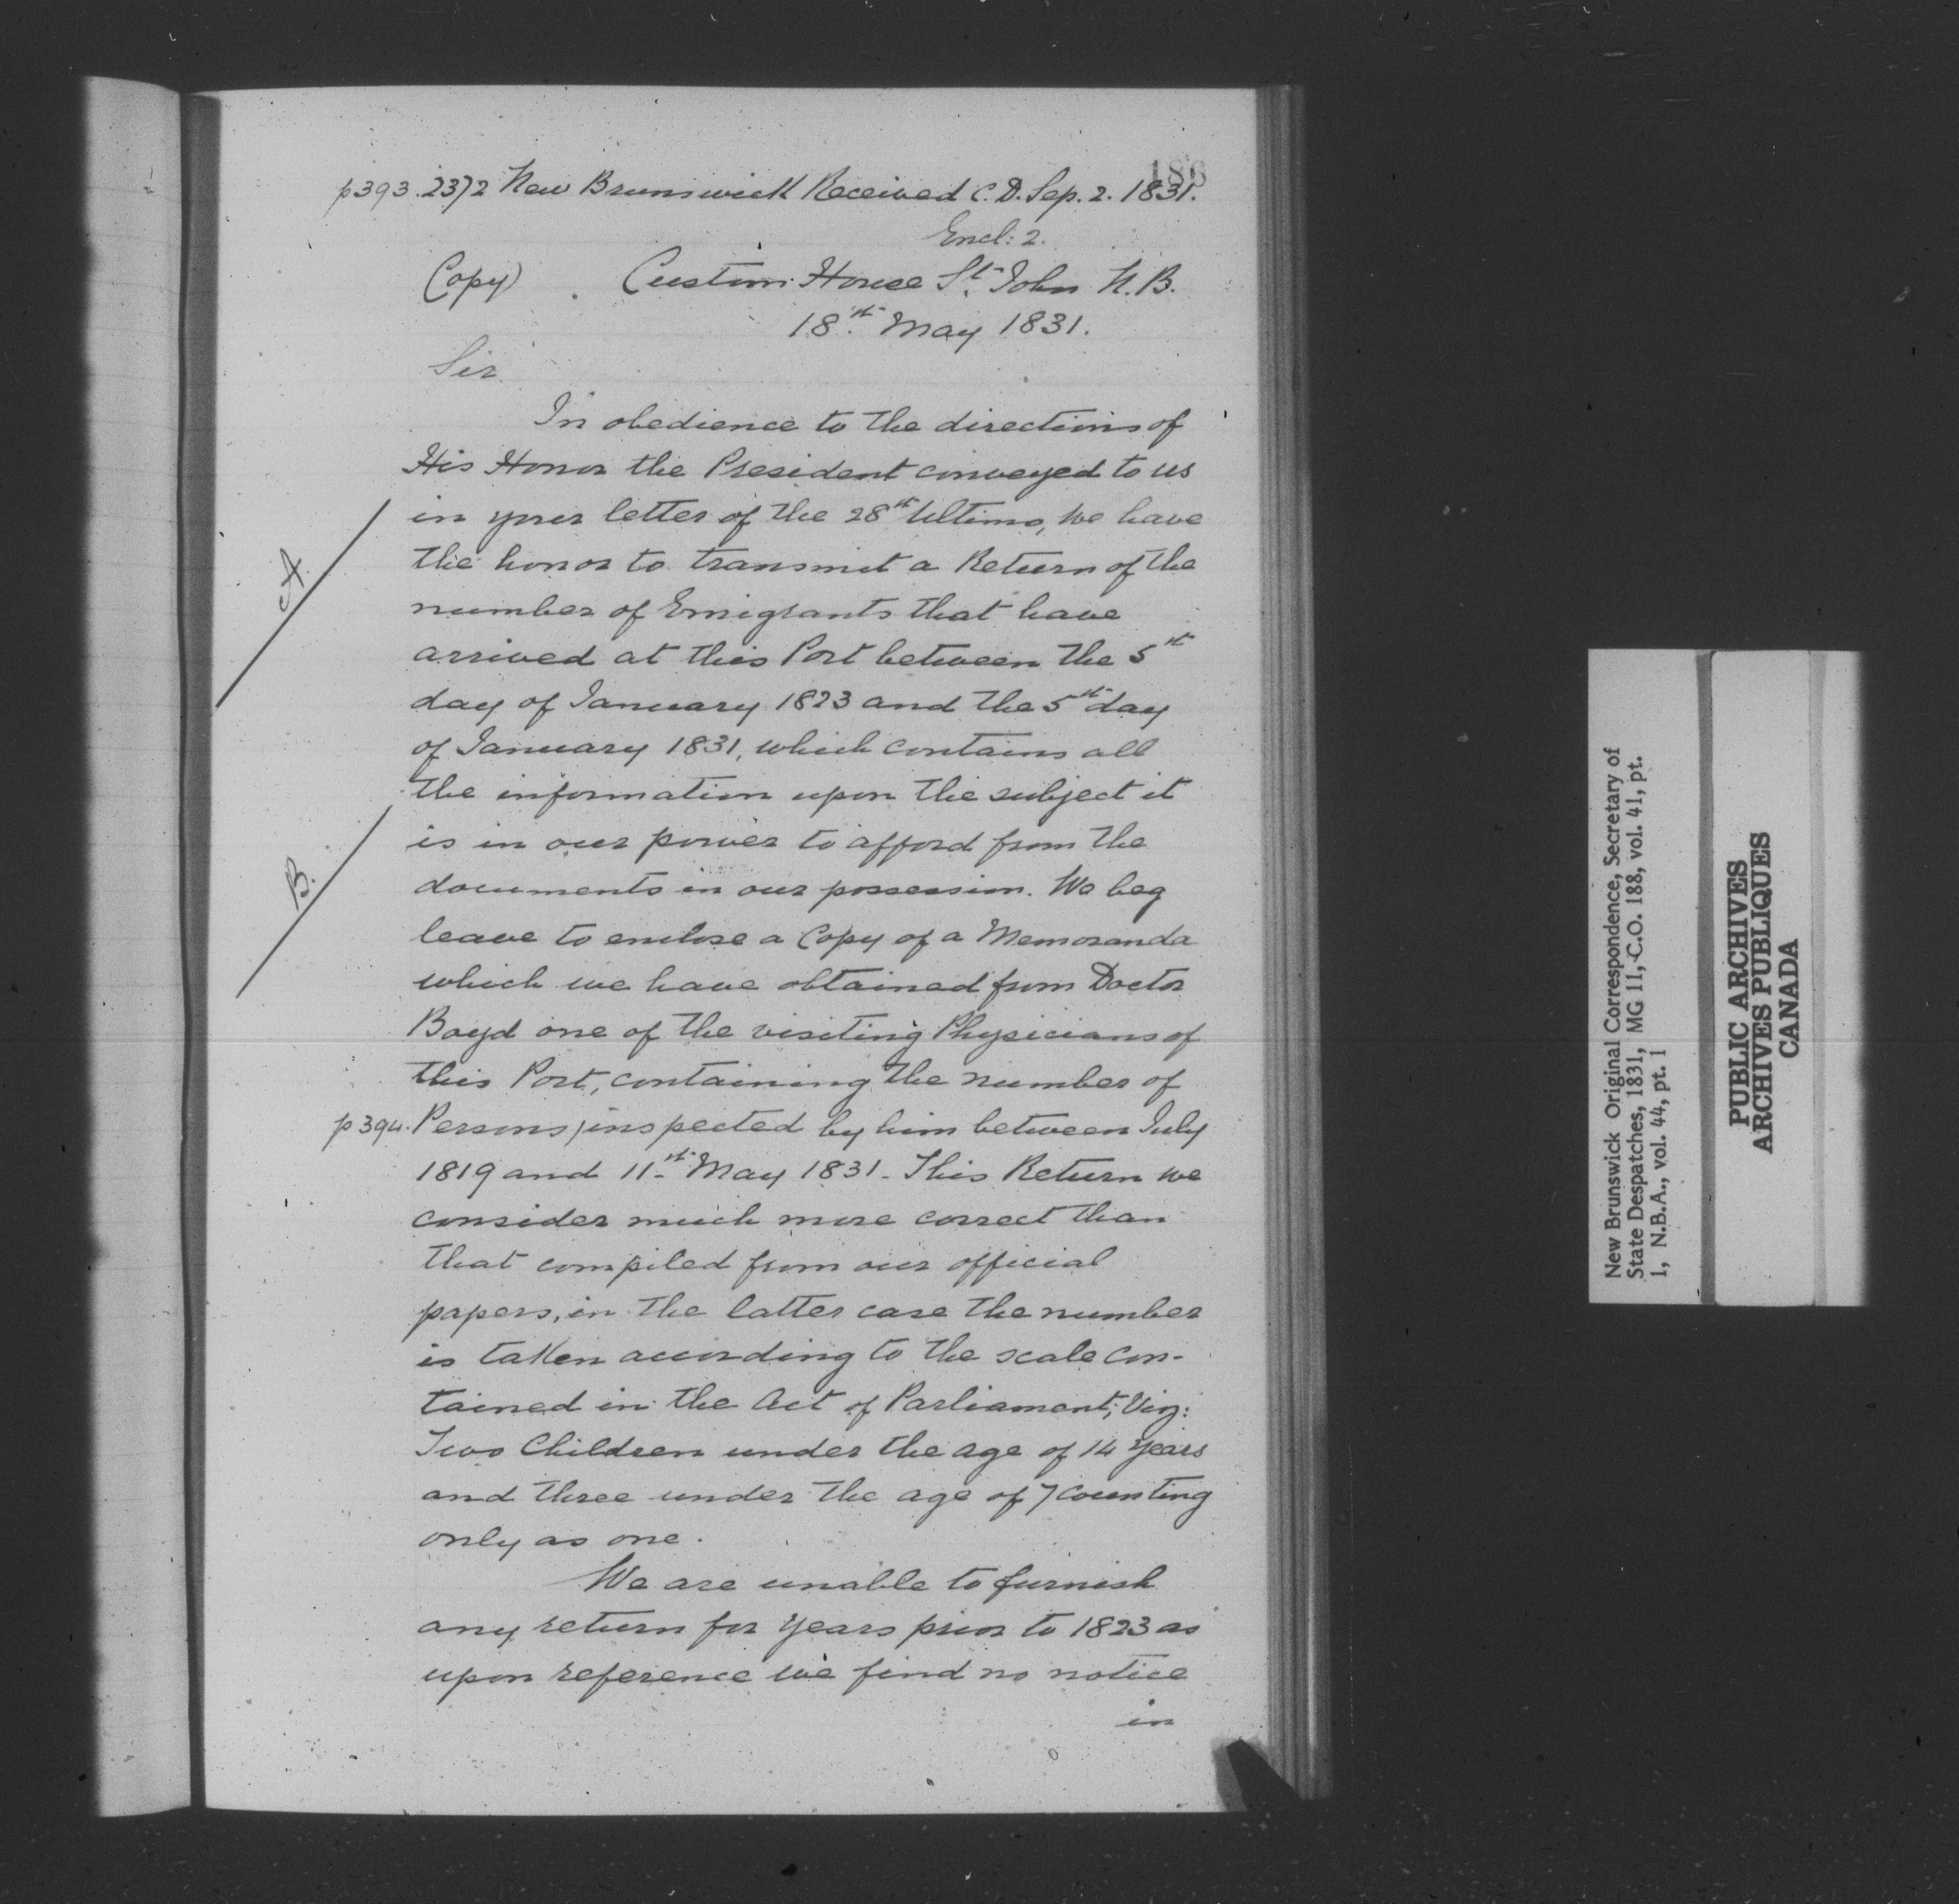 186
p393. 2372 New Brunswick Received C.D. Sep. 2. 1831.
Encl: 2.
(Copy) Custom House St. John N.B.
18th May 1831.
Sir
In obedience to the directions of
His Honor the President conveyed to us
in your letter of the 28th Ultimo, we have
A.
the honor to transmit a Return of the
number of Emigrants that have
arrived at this Port between the 5th
day of January 1823 and the 5th day
of January 1831, which contains all
the information upon the subject it
is in our power to afford from the
B.
documents in our possession. We beg
leave to enclose a Copy of a Memoranda
which we have obtained from Doctor
Boyd one of the visiting Physicians of
this Port, containing the number of
p394. Persons inspected by him between July
1819 and 11th May 1831. This Return we
consider much more correct than
that compiled from our official
papers, in the latter case the number
is taken according to the scale con-
tained in the Act of Parliament; Viz:
Two Children under the age of 14 years
and three under the age of 7 counting
only as one.
We are unable to furnish
any return for years prior to 1823 as
upon reference we find no notice
in
New Brunswick Original Correspondence, Secretary of
State Despatches, 1831, MG 11, C.O. 188, vol. 41, pt.
1, N.B.A., vol. 44, pt. 1
PUBLIC ARCHIVES
ARCHIVES PUBLIQUES
CANADA